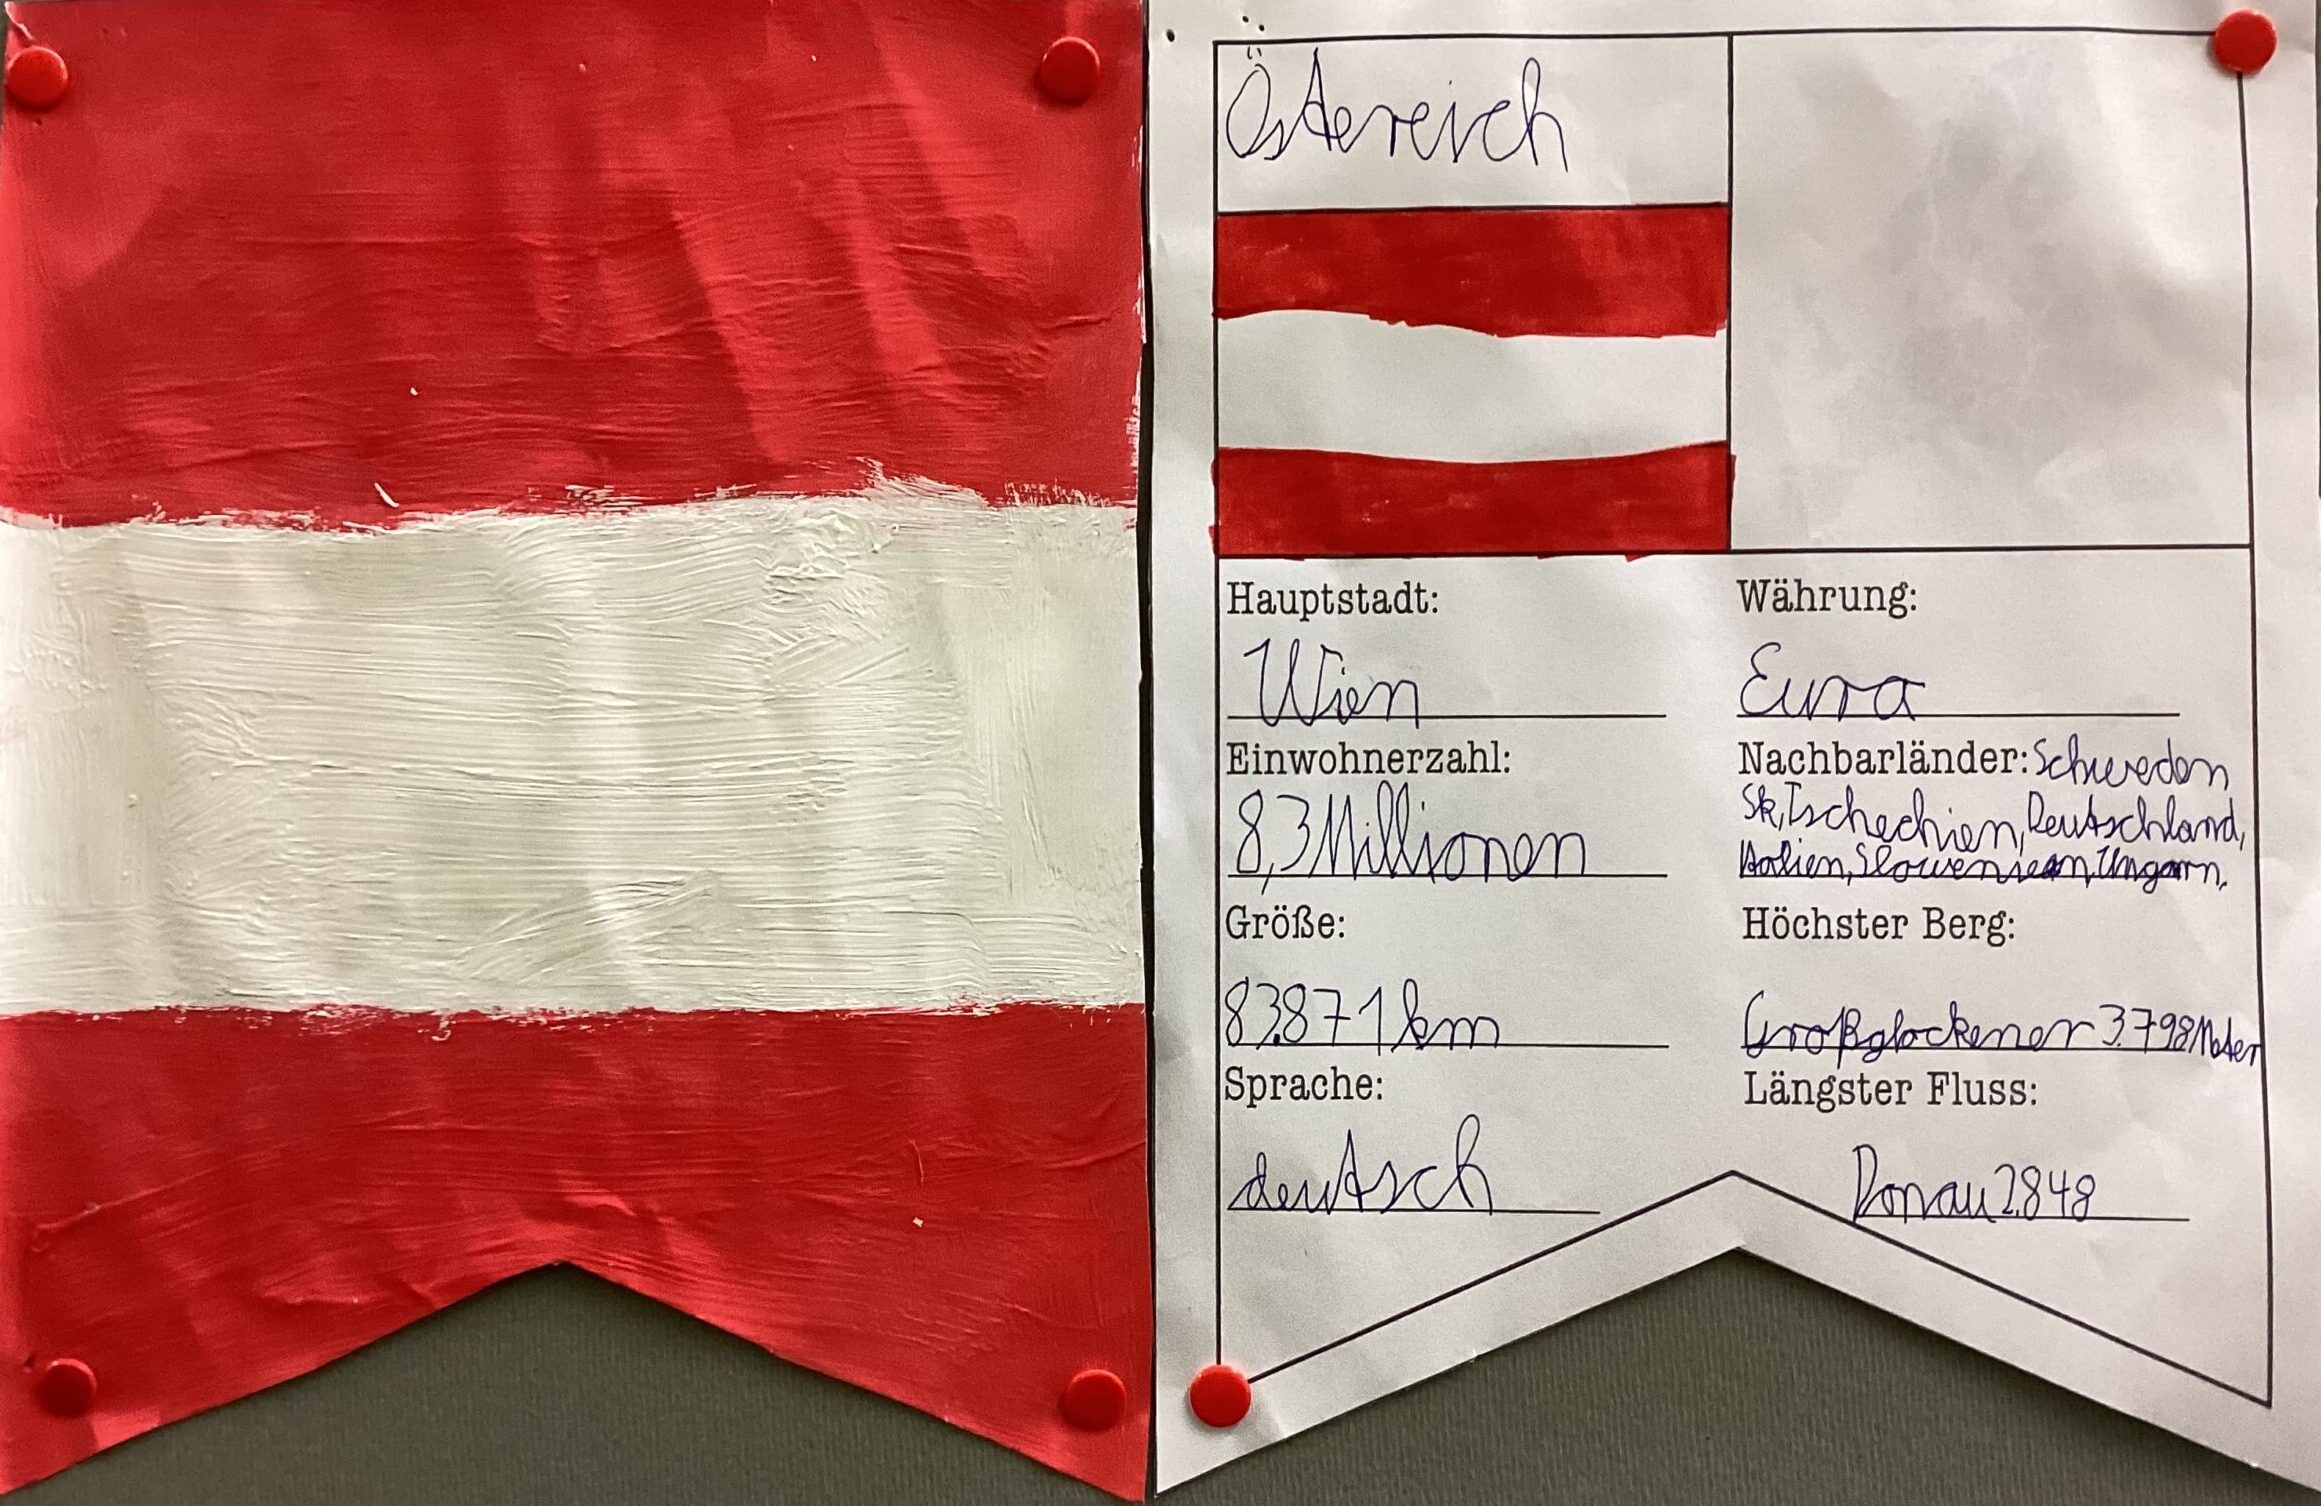 Östereich
Hauptstadt:
Wien
Einwohnerzahl:
8,3 Millionen
Größe:
83.871 km
Sprache:
deutsch
Währung:
Euro
Nachbarländer: Schweden
Sk, Tschechien, Deutschland,
Italien, Slowenien, Ungarn,
Höchster Berg:
Großglockener 3.798 Meter
Längster Fluss:
Donau 2.848